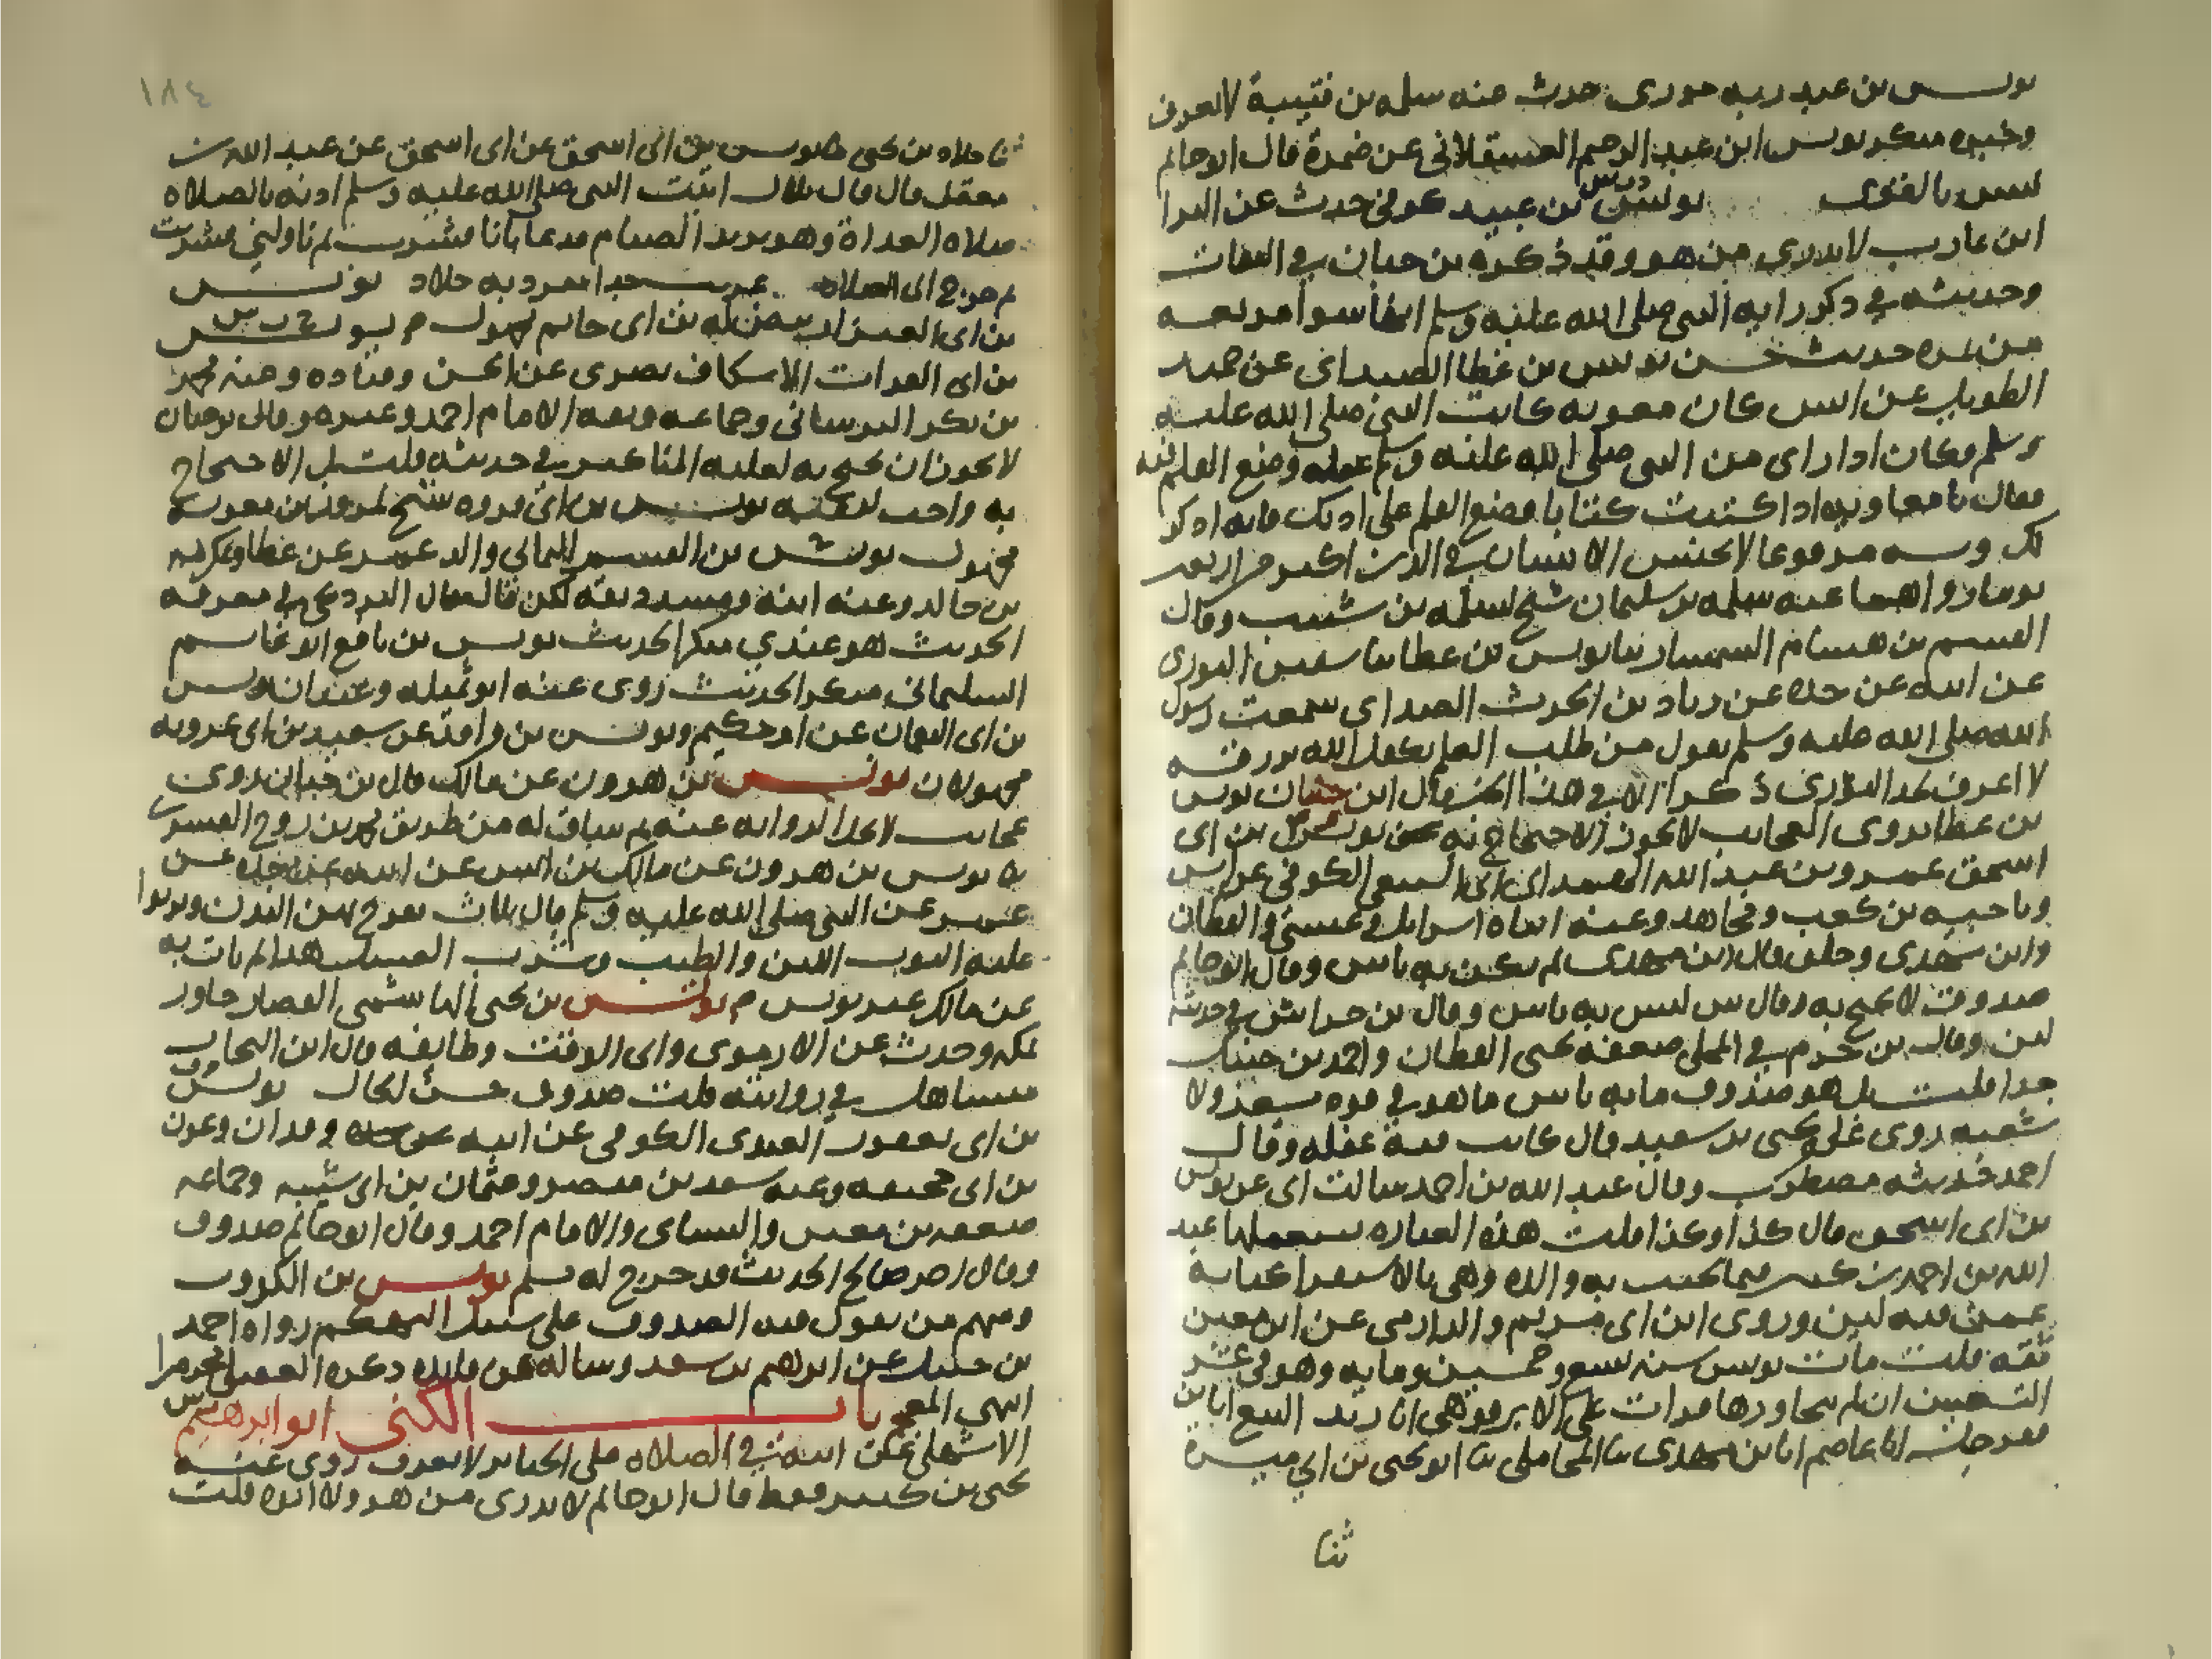 يونس بن عبد ربه حدث عنه سلمه بن قتيبة لا يعرف
وخبره منكر يونس ابن عبد الرحيم العسقلاني عن ضمرة قال ابو حاتم
ليس بالقوى يونس بن عبيد كوفي حدث عن البرا
ابن عازب لا يدرى من هو وقد ذكره بن حبان في الثقات
وحديثه في ذكر رايه النبي صلى الله عليه وسلم انها سودا مربعه
من نمره حديث حسن يونس بن عطا الصداى عن حميد
الطويل عن انس كان معويه كاتب النبي صلى الله عليه
وسلم وكان اذا راى من النبي صلى الله عليه وسلم غفله وضع القلم فيه
فقال يا معاويه اذا كتبت كتابا فضع القلم على اذنك فانه اذكر
لك وبه مرفوعا لا يحتبس الانسان في الدين اكثر من اربعين
يوما رواهما عنه سلمه بن سليمان شيخ لسلمه بن شبيب وقال
القسم بن هشام السمسار ثنا يونس بن عطا ثنا سفين الثورى
عن ابيه عن جده عن زياد بن الحرث الصداى سمعت رسول
الله صلى الله عليه وسلم يقول من طلب العلم تكفل الله برزقه
لا اعرف لجد الثورى ذكرا الا في هذا الخبر قال ابن حبان يونس
بن عطا يروى العجايب لا يجوز الاحتجاج به يونس بن ابى
اسحق عمرو بن عبد الله الهمدانى السبيعى الكوفي عن انس
وناجيه بن كعب ومجاهد وعنه ابناه اسرايل وعيسى والقطان
وابن مهدى وخلق قال ابن مهدى لم يكن به باس وقال ابو حاتم
صدوق لا يحتج به وقال س ليس به باس وقال بن خراش في حديثه
لين وقال بن حزم في المحلى ضعفه يحيى القطان واحمد بن حنبل
جدا قلت بل هو صدوق ما به باس ما هو في قوه مسعر ولا
شعبه روى على عن يحيى بن سعيد قال كانت فيه غفله وقال
احمد حديثه مضطرب وقال عبد الله بن احمد سالت ابى عن يونس
بن ابى اسحق قال كذا وكذا قلت هذه العباره يستعملها عبد
الله بن احمد كثيرا فيما يجيبه به والده وهى بالاستقرا كناية
عمن فيه لين وروى ابن ابى مريم والدارمى عن ابن معين
ثقه قلت مات يونس سنه تسع وخمسين ومايه وهو في عشر
التسعين ان لم يجاوزها قرات على الابرقوهى انا زيد البيع انا بن
انا عاصم انا بن مهدى ثنا المحاملى ثنا ابو يحيى بن ابي ميسرة
ثنا
١٨٤
ثنا خلاد بن يحيى ثنا يونس بن ابى اسحق عن ابى اسحق عن عبد الله بن
معقل قال قال بلال اتيت النبي صلى الله عليه وسلم اوذنه بالصلاه
صلاه الغداة وهو يريد الصيام فدعا بانا فشرب ثم ناولني فشربت
ثم خرج الى الصلاه غريب جدا تفرد به خلاد يونس
بن ابى العيزار بيض له بن ابى حاتم مجهول م يونس
بن ابى الفرات الاسكاف بصرى عن الحسن وقتاده وعنه محمد
بن بكر البرسانى وجماعه وثقه الامام احمد وغيره وقال بن حبان
لا يجوز ان يحتج به لغلبه المناكير في حديثه قلت بل الاحتجاج
به واجب لثقته يونس بن ابى فروه شيخ لمروان بن معويه
مجهول يونس بن القسم اليمامي والد عمر عن عطا وعكرمه
بن خالد وعنه ابنه ومسدد ثقه لكن قال البرديجى في معرفه
الحديث هو عندي منكر الحديث يونس بن نافع ابو غانم
السليمانى منكر الحديث روى عنه ابو تميله وعبدان يونس
بن ابى النعمان عن ام حكيم ويونس بن واقد عن سعيد بن ابى عروبه
مجهولان يونس بن هرون عن مالك قال بن حبان روى
عجايب لا تحل الروايه عنه ثم ساق له من طريق محمد بن روح
ثنا يونس بن هرون عن مالك بن انس عن ابيه عن جده عن
عمر عن النبي صلى الله عليه وسلم قال ثلاث يفرح بهن البدن ويربوا
عليه الثوب اللين والطيب وشرب العسل هذا لم يات به
عن مالك غير يونس م يونس بن يحيى الهاشمى القصار جاور
بمكه وحدث عن الارموى وابى الوقت وطايفه قال ابن النجار
متساهل في روايته قلت صدوق حسن الحال يونس
بن ابى يعفور العبدى الكوفى عن ابيه وقدان وعون
بن ابى جحيفه وعنه سعيد بن منصور وعثمان بن ابى شيبه وجماعه
ضعفه بن معين والنساى والامام احمد وقال ابو حاتم صدوق
وقال اخر صالح الحديث قد خرج له مسلم يونس بن الكذوب
ومنهم من يقول فيه الصدوق على سبيل التهكم رواه احمد
بن حنبل عن ابرهيم بن سعد وساله عن فايده ذكره
انتهى المعجم باب الكنى ابو ابرهيم س
الاشهلى عن ابيه في الصلاه على الجنايز لا يعرف روى عنه
يحيى بن كثير فقط قال ابو حاتم لا يدرى من هو ولا ابوه قلت